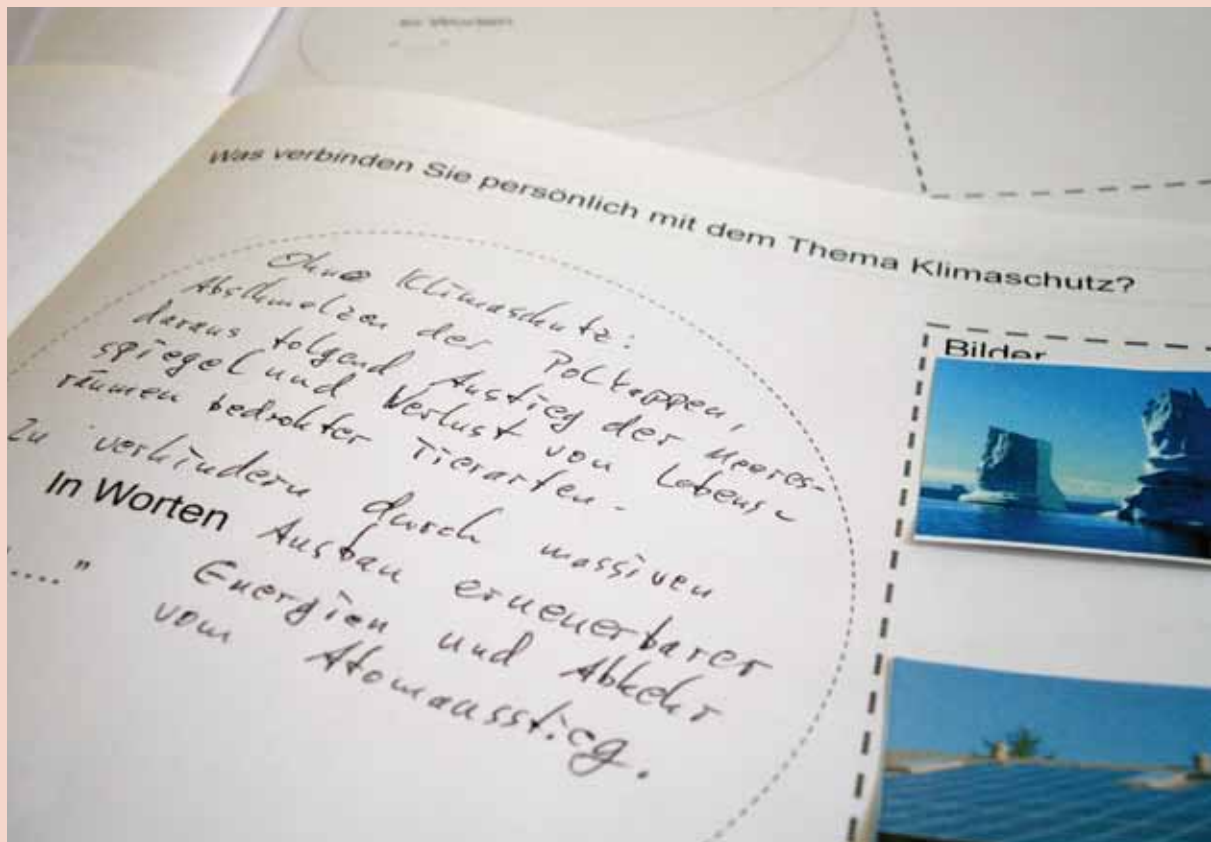 Was verbinden Sie persönlich mit dem Thema Klimaschutz?
Ohne Klimaschutz:
Abschmelzen der Polkappen,
daraus folgend Anstieg der Meeres-
spiegel und Verlust von Lebens-
räumen bedrohter Tierarten.
Zu verhindern durch massiven
In Worten Ausbau erneuerbarer
"...." Energien und Abkehr
vom Atomausstieg.
Bilder